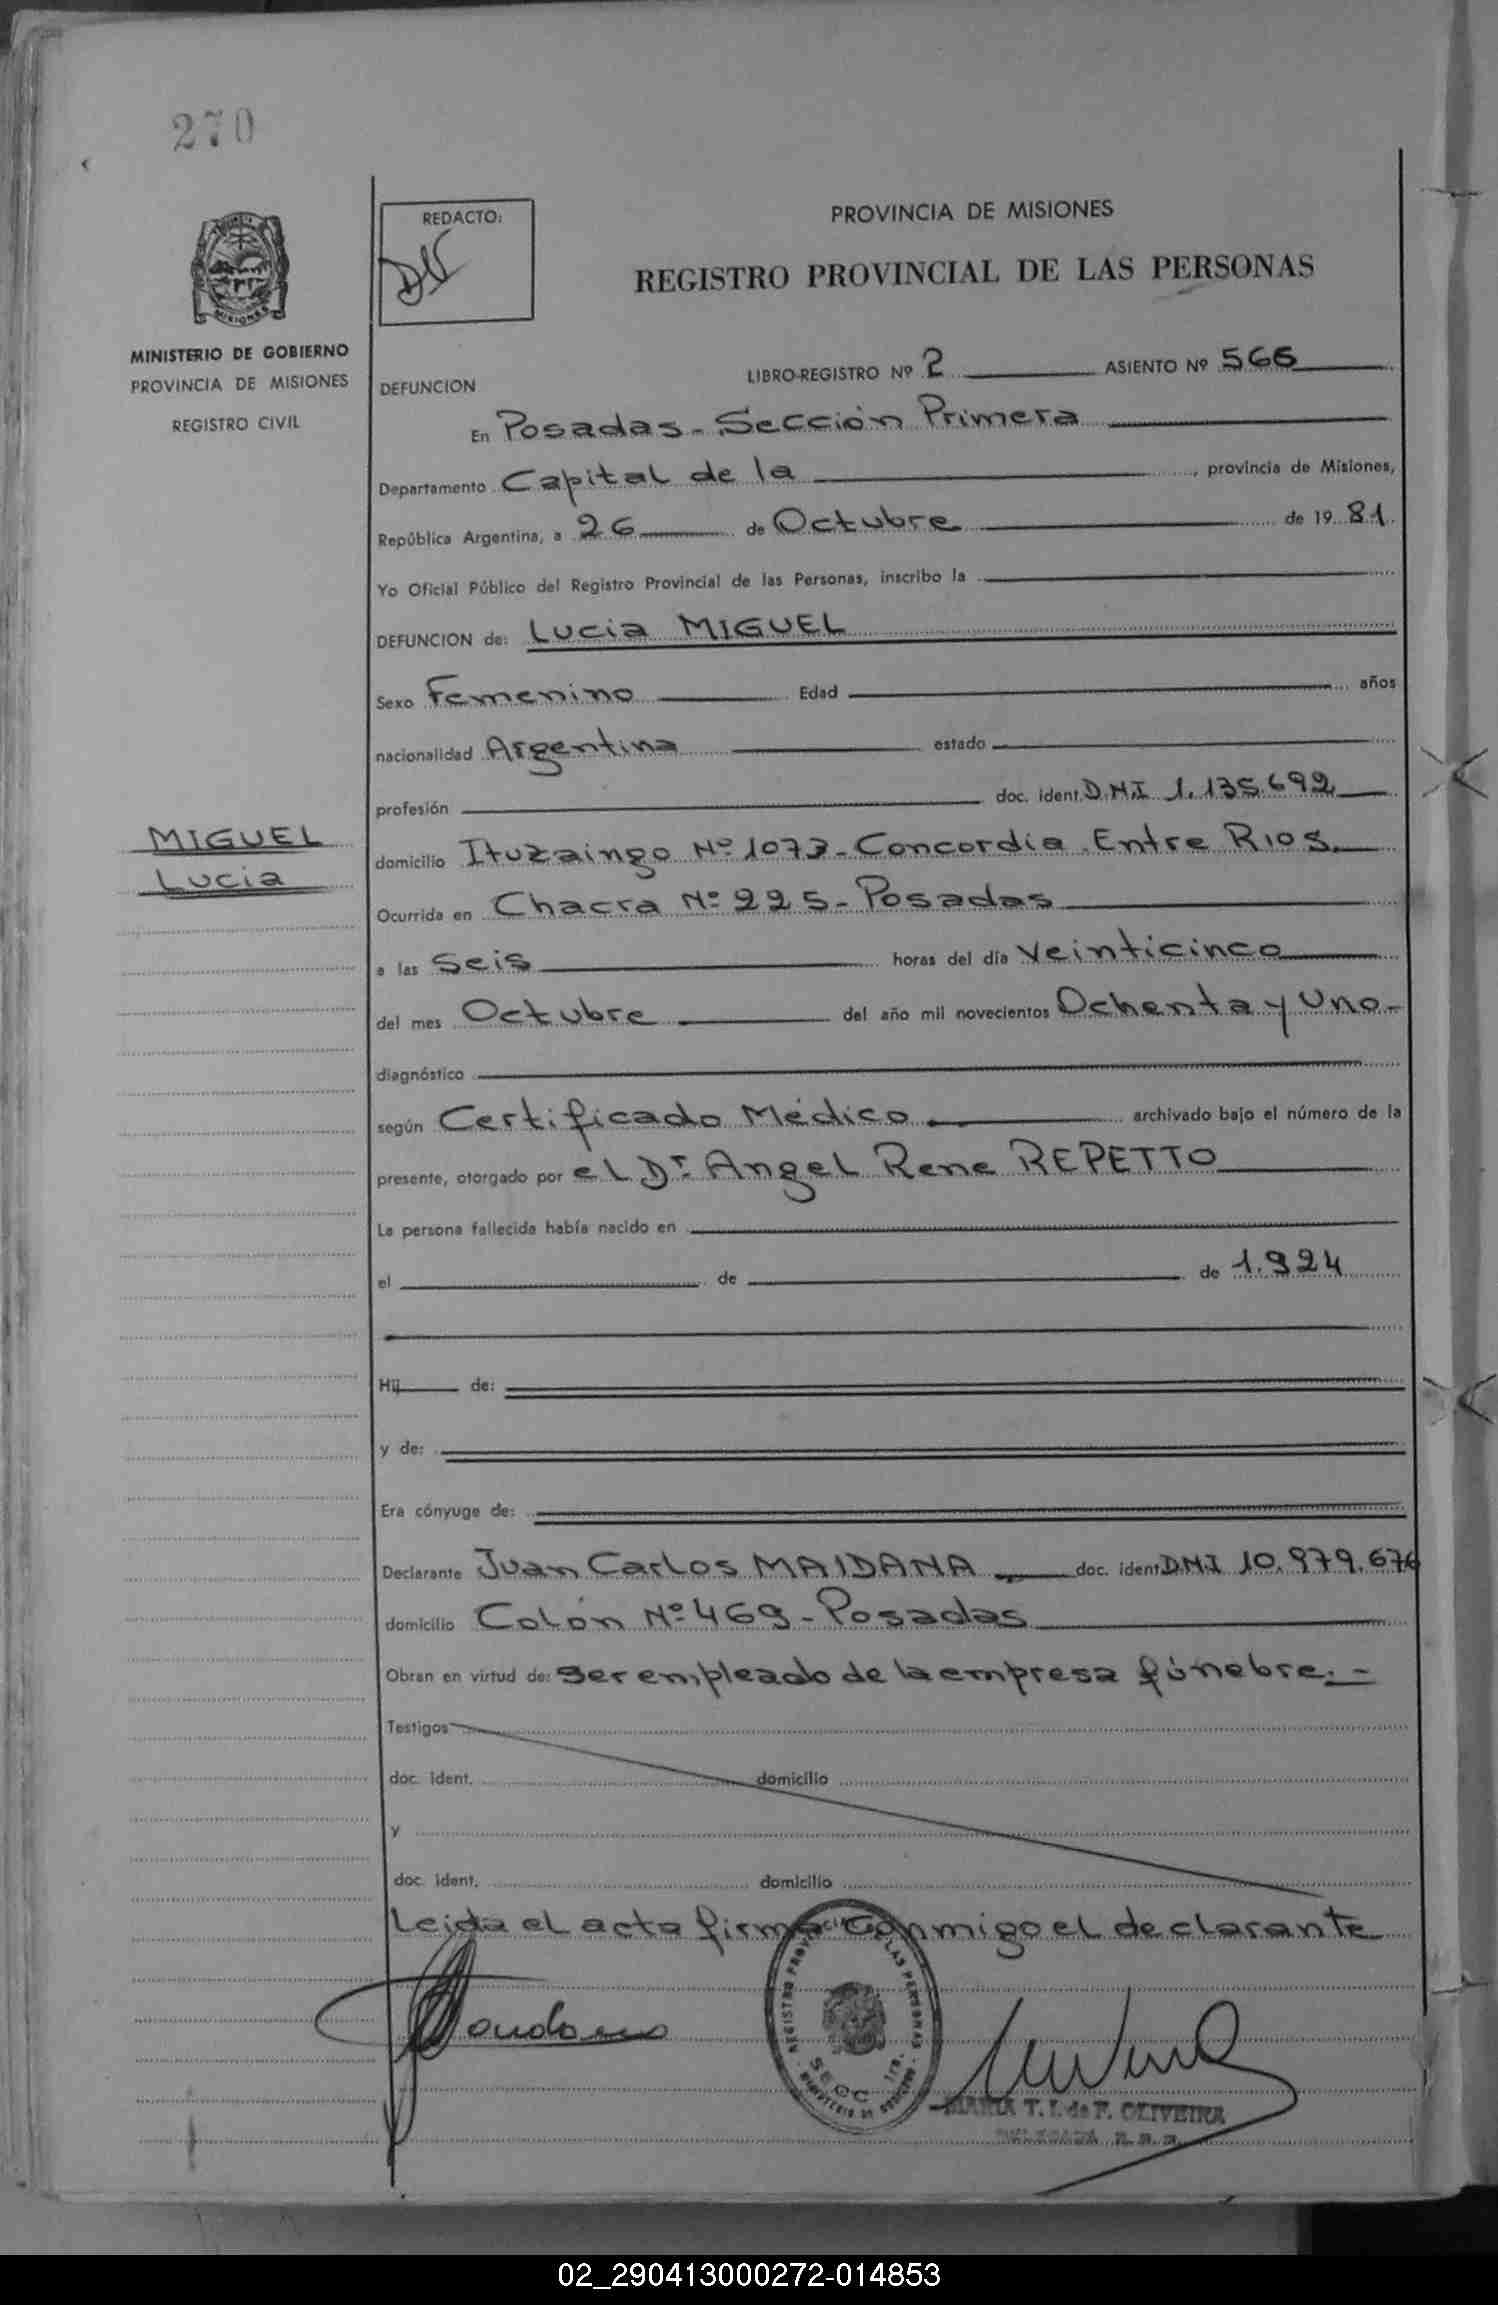 270
MINISTERIO DE GOBIERNO
PROVINCIA DE MISIONES
REGISTRO CIVIL
REDACTO:
PROVINCIA DE MISIONES
REGISTRO PROVINCIAL DE LAS PERSONAS
DEFUNCION LIBRO-REGISTRO Nº 2 ASIENTO Nº 566
En Posadas - Sección Primera
Departamento Capital de la, provincia de Misiones,
República Argentina, a 26 de Octubre de 19 81
Yo Oficial Público del Registro Provincial de las Personas, inscribo la
DEFUNCION de: Lucia MIGUEL
Sexo Femenino Edad años
nacionalidad Argentina estado
profesión doc. ident. D.N.I 1.135.692
MIGUEL
Lucia
domicilio Ituzaingo Nº 1073 - Concordia Entre Rios.
Ocurrida en Chacra Nº 225 - Posadas
a las Seis horas del día Veinticinco
del mes Octubre del año mil novecientos Ochenta y Uno-
diagnóstico
según Certificado Médico archivado bajo el número de la
presente, otorgado por el Dr. Angel Rene REPETTO
La persona fallecida había nacido en
el de de 1.924
Hij de:
y de:
Era cónyuge de:
Declarante Juan Carlos MAIDANA doc. ident DNI 10.979.676
domicilio Colón Nº 469 - Posadas
Obran en virtud de: ser empleado de la empresa fúnebre.-
Testigos
doc. ident. domicilio
y
doc. ident. domicilio
Leida el acta firma conmigo el declarante
REGISTRO LAS PERSONAS
SECC. 1ra.
MARIA T. I. de F. OLIVEIRA
02_290413000272-014853